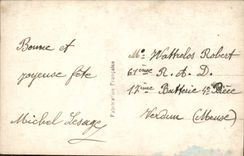 Bonne et
joyeuse fête
Michel Lesage
Fabrication Française
Mr Wattrelos Robert
61ème R. A. D.
12ème Batterie 4e Pièce
Verdun (Meuse)